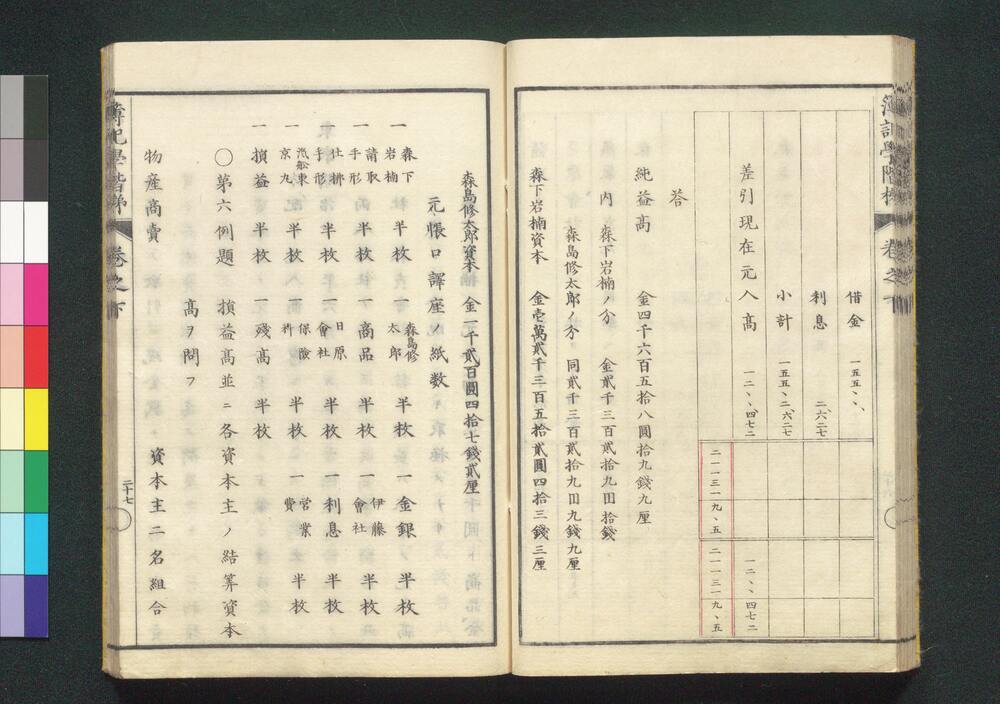 簿記學階梯 卷之下
借金 一五五、、、
利息 二、六二七
小計 一五五、二、六二七
差引現在元入高 一二、、、四七二 一二、、、四七二
二一一三一九、五 二一一三一九、五
答
純益高 金四千六百五拾八圓拾九錢九厘
内 森下岩楠ノ分 金貳千三百貳拾九圓拾錢
森島修太郎ノ分 同貳千三百貳拾九圓九錢九厘
森下岩楠資本 金壱萬貳千三百五拾貳圓四拾三錢三厘
森島修太郎資本 金一千貳百圓四拾七錢貳厘
元帳口譯座ノ紙數
一 森下岩楠 半枚 一 森島修太郎 半枚 一 金銀 半枚
一 請取手形 半枚 一 商品 半枚 一 伊藤會社 半枚
一 仕拂手形 半枚 一 日原會社 半枚 一 利息 半枚
一 滊舩東京丸 半枚 一 保險料 半枚 一 營業費 半枚
一 損益 半枚 一 殘高 半枚
〇第六例題 損益高並ニ各資本主ノ結算資本
高ヲ問フ
物産商賣 資本主二名組合
簿記學階梯 卷之下 二十七